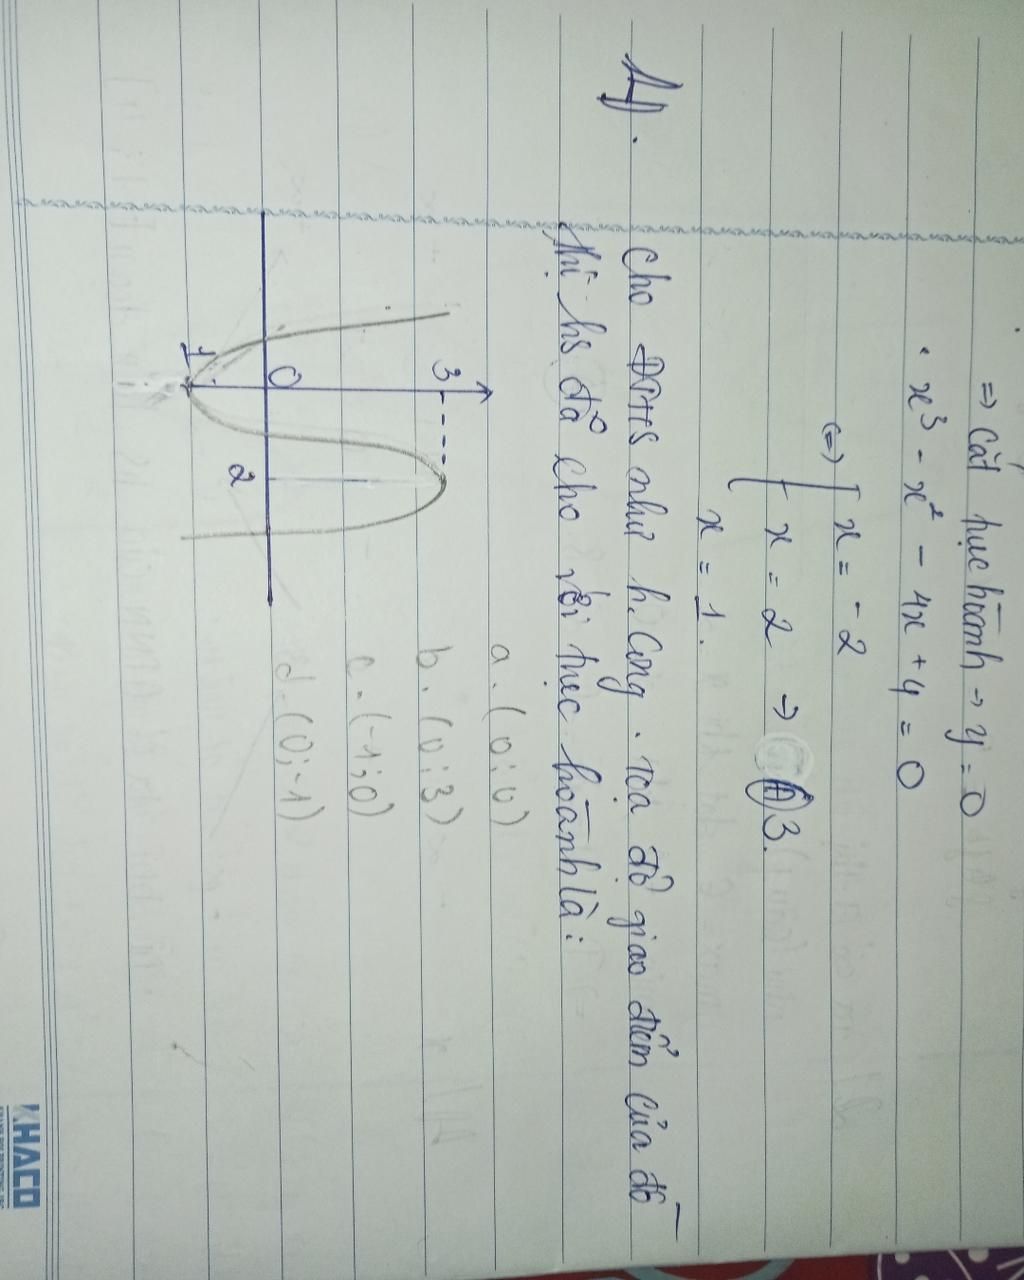 => Cắt trục hoành → y = 0
• x³ - x² - 4x + 4 = 0
<=> [ x = -2
x = 2 => (A) 3.
x = 1.
11). Cho ĐTHS như h. Cong. Tọa độ giao điểm của đồ
thị hs đã cho với trục hoành là:
a. (0;0)
b. (0;3)
c. (-1;0)
d. (0;-1)
3
O
2
-1
KHACO